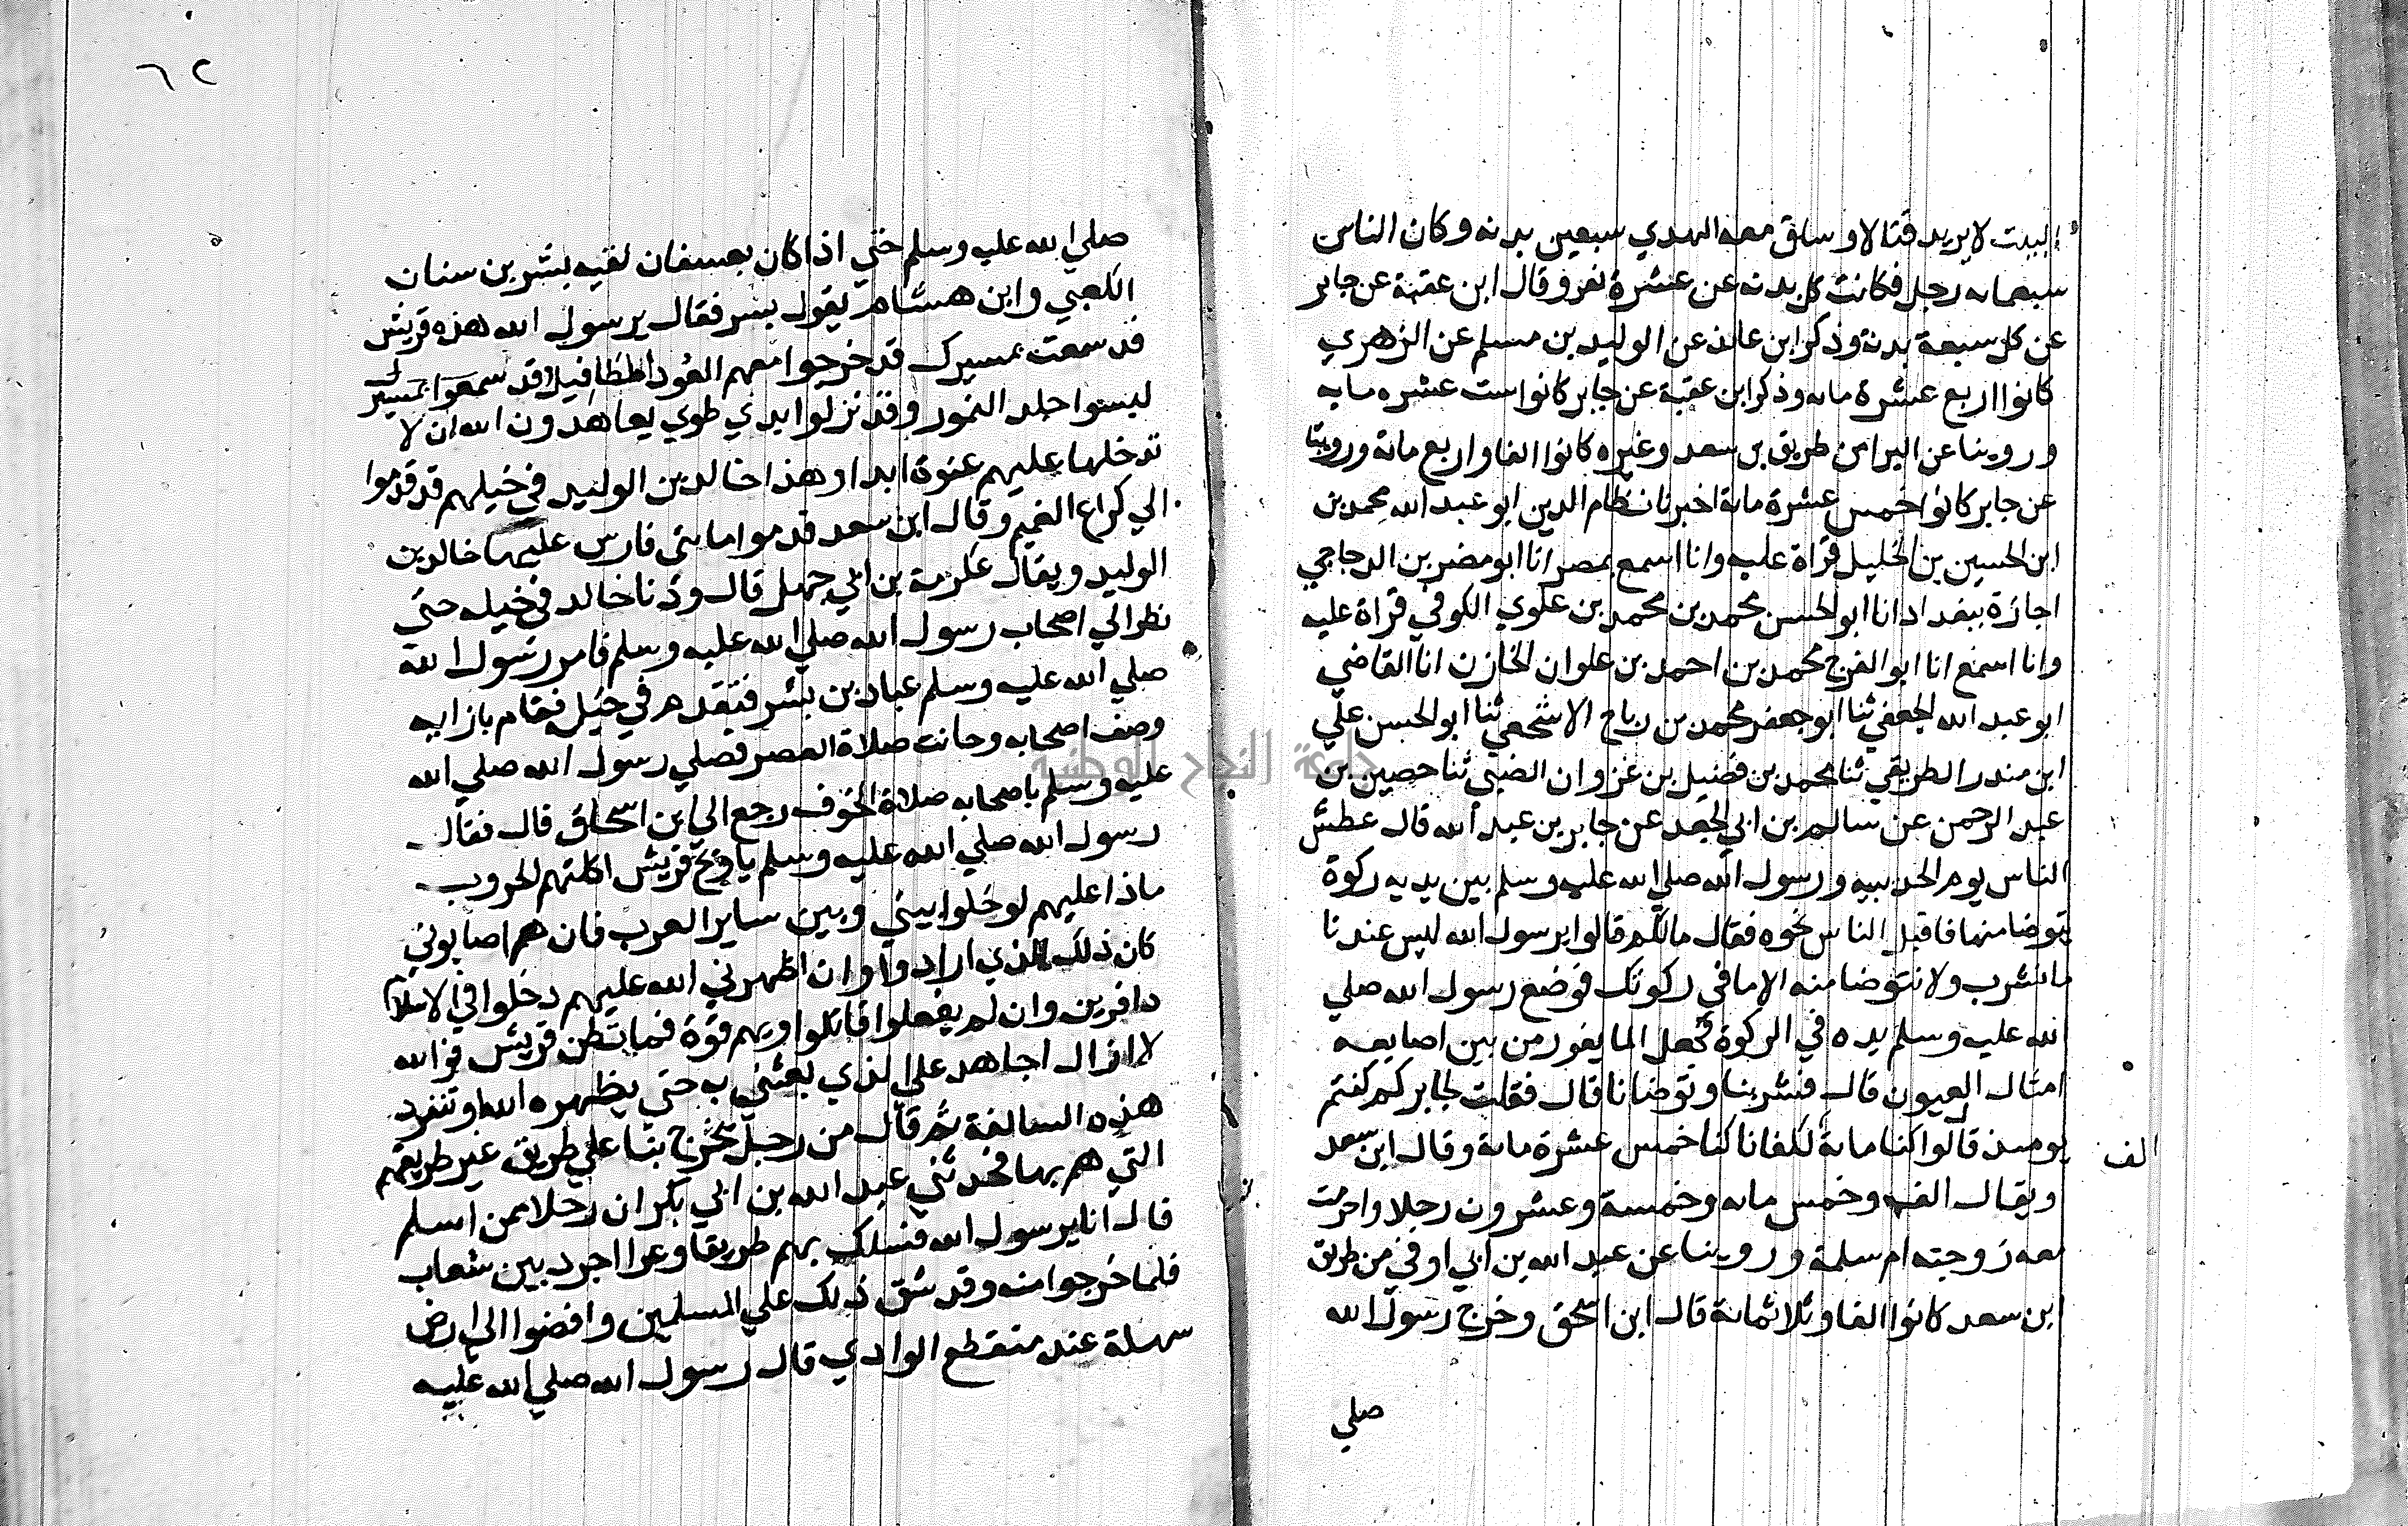 البيت لا يريد قتالا وساق معه الهدي سبعين بدنه وكان الناس
سبعمايه رجل فكانت كل بدنه عن عشرة نفر وقال ابن عقبة عن جابر
عن كل سبعة بدنة وذكر ابن عائذ عن الوليد بن مسلم عن الزهري
كانوا اربع عشرة مايه وذكر ابن عقبة عن جابر كانوا ست عشره مايه
وروينا عن البرا من طريق بن سعد وغيره كانوا الفا واربع ماية وروينا
عن جابر كانوا خمس عشرة ماية اخبرنا نظام الدين ابو عبد الله محمد بن
ابن الحسين بن الخليل قراة عليه وانا اسمع بمصر انا ابو مضر بن الدجاجي
اجازة ببغداد انا ابو الحسن محمد بن محمد بن علوي الكوفي قراة عليه
وانا اسمع انا ابو الفرج محمد بن احمد بن علوان الخازن انا القاضي
ابو عبد الله الجعفي ثنا ابو جعفر محمد بن رباح الاشجعي ثنا ابو الحسن علي
ابن مندر الطريقي ثنا محمد بن فضيل بن غزوان الضبي ثنا حصين بن
عبد الرحمن عن سالم بن ابي الجعد عن جابر بن عبد الله قال عطش
الناس يوم الحديبيه ورسول الله صلي الله عليه وسلم بين يديه ركوة
يتوضا منها فاقبل الناس نحوه فقال مالكم قالوا يرسول الله ليس عندنا
ما نشرب ولا نتوضا منه الا ما في ركوتك فوضع رسول الله صلي
الله عليه وسلم يده في الركوة فجعل الما يفور من بين اصابعه
امثال العيون قال فشربنا وتوضانا قال فقلت لجابر كم كنتم
يومىذ قالوا كنا ماية لكفانا كنا خمس عشرة ماية وقال ابن سعد
الف
ويقال الف وخمس مايه وخمسة وعشرون رجلا واخرجت
معه زوجته ام سلمة وروينا عن عبد الله بن ابي اوفي من طريق
ابن سعد كانوا الفا وثلاثماية قال ابن اسحق وخرج رسول الله
صلي
٦٢
صلي الله عليه وسلم حتي اذا كان بعسفان لقيه بشر بن سنان
الكعبي وابن هشام يقول بسر فقال يرسول الله هذه قريش
قد سمعت بمسيرك قد خرجوا معهم العوذ المطافيل قد سمعوا بمسيرك
لبسوا جلد النمور وقد نزلوا بذي طوي يعاهدون الله ان لا
تدخلها عليهم عنوة ابدا وهذا خالد بن الوليد في خيلهم قد قدموا
الي كراع الغميم وقال ابن سعد قدموا مايتي فارس عليها خالد بن
الوليد ويقال عكرمة بن ابي جهل قال ودنا خالد في خيله حتي
نظر الي اصحاب رسول الله صلي الله عليه وسلم فامر رسول الله
صلي الله عليه وسلم عباد بن بشر فتقدم في خيله فقام بازايه
وصف اصحابه وحانت صلاة العصر فصلي رسول الله صلي الله
عليه وسلم باصحابه صلاة الخوف رجع الي ابن اسحاق قال فقال
رسول الله صلي الله عليه وسلم يا ويح قريش اكلتهم الحروب
ماذا عليهم لو خلوا بيني وبين ساير العرب فان هم اصابوني
كان ذلك الذي ارادوا وان اظهرني الله عليهم دخلوا في الاسلام
دافرين وان لم يفعلوا قاتلوا وبهم قوة فما تظن قريش فوالله
لا ازال اجاهد علي الذي بعثني به حتي يظهره الله او تنفرد
هذه السالفة ثم قال من رجل يخرج بنا علي طريق غير طريقهم
التي هم بها فحدثني عبد الله بن ابي بكر ان رجلا من اسلم
قال انا يرسول الله فسلك بهم طريقا وعرا اجرد بين شعاب
فلما خرجوا منه وقد شق ذلك علي المسلمين وافضوا الي ارض
سهلة عند منقطع الوادي قال رسول الله صلي الله عليه
جامعة النجاح الوطنية